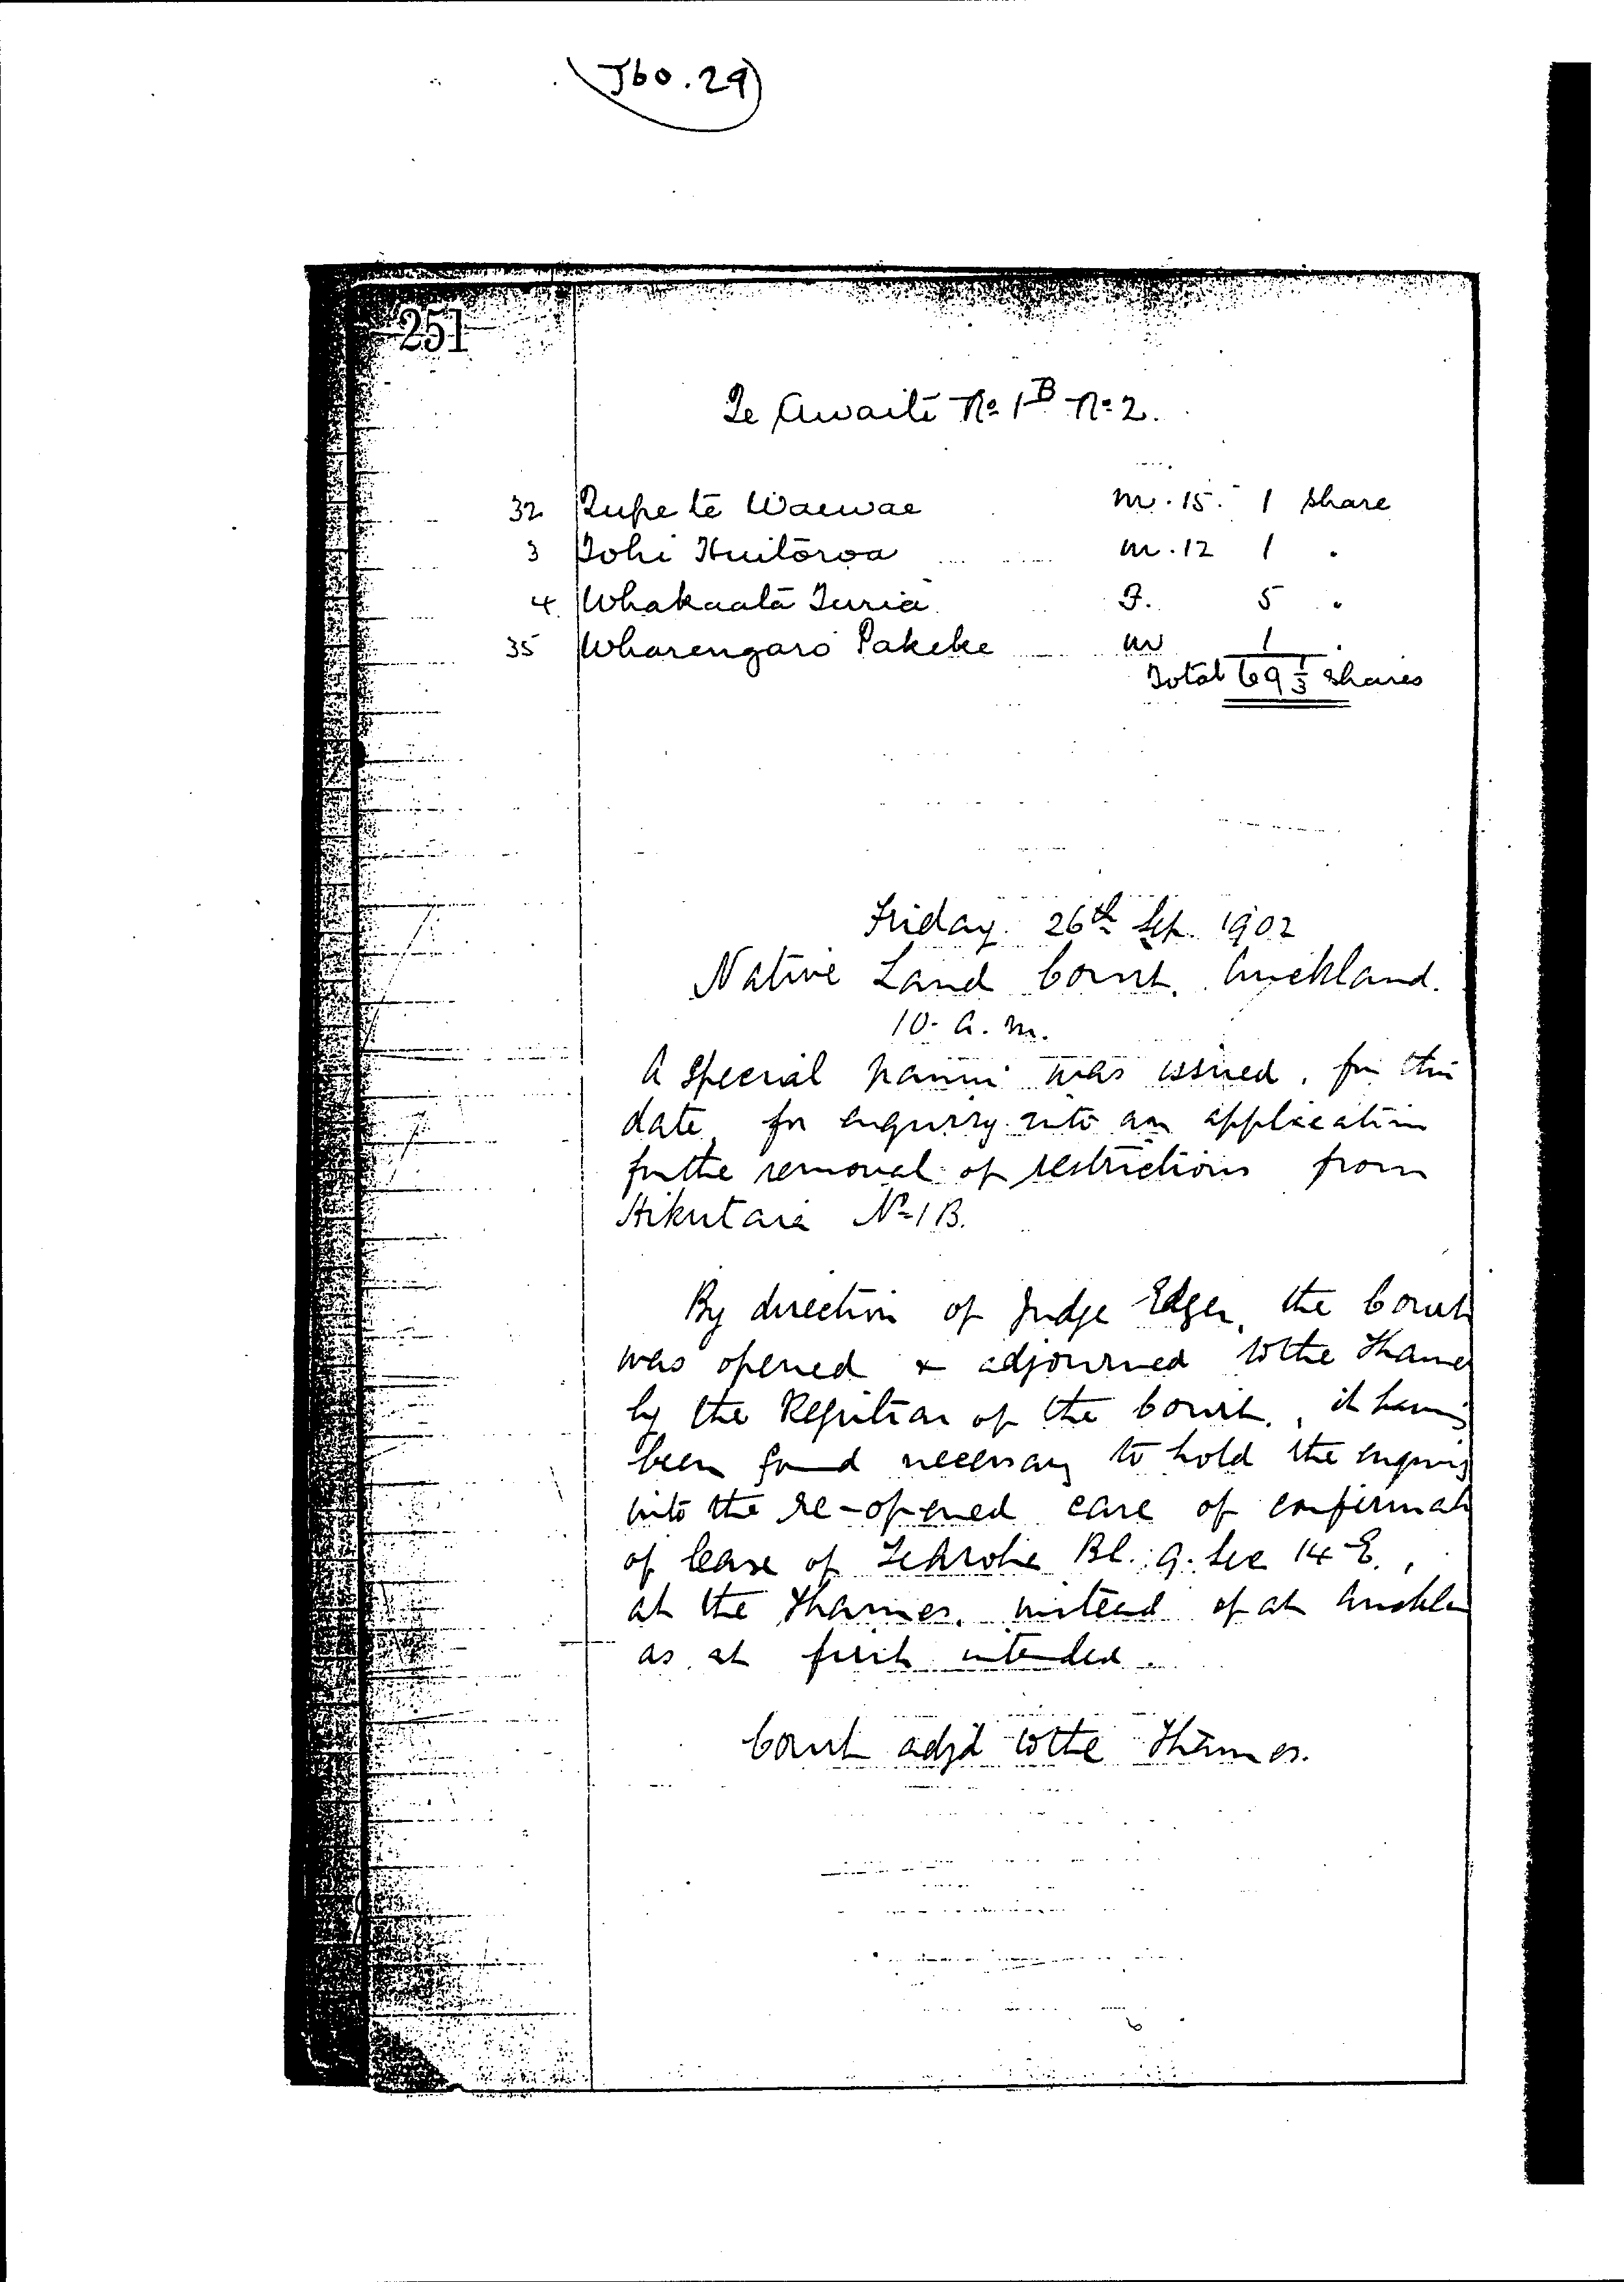 J60.29
251
Te Awaiti No 1B No 2.
32 Tupe te Waewae m. 15. 1 share
3 Tohi Huitoroa m. 12 1 "
4 Whakaata Turia F. 5 "
35 Wharengaro Pakeke m 1 "
Total 69 1/3 shares
Friday 26th Sep. 1902
Native Land Court, Auckland.
10. a.m.
A Special Panui was issued, for this
date, for enquiry into an application
for the removal of restrictions from
Hikutaia No 1B.
By direction of Judge Edger, the Court
was opened & adjourned to the Thames
by the Registrar of the Court, it having
been found necessary to hold the enquiry
into the re-opened case of confirmat
of lease of Te Aroha Bl. 9. Sec 14 E.,
at the Thames, instead of at Aucklan
as at first intended.
Court adjd to the Thames.